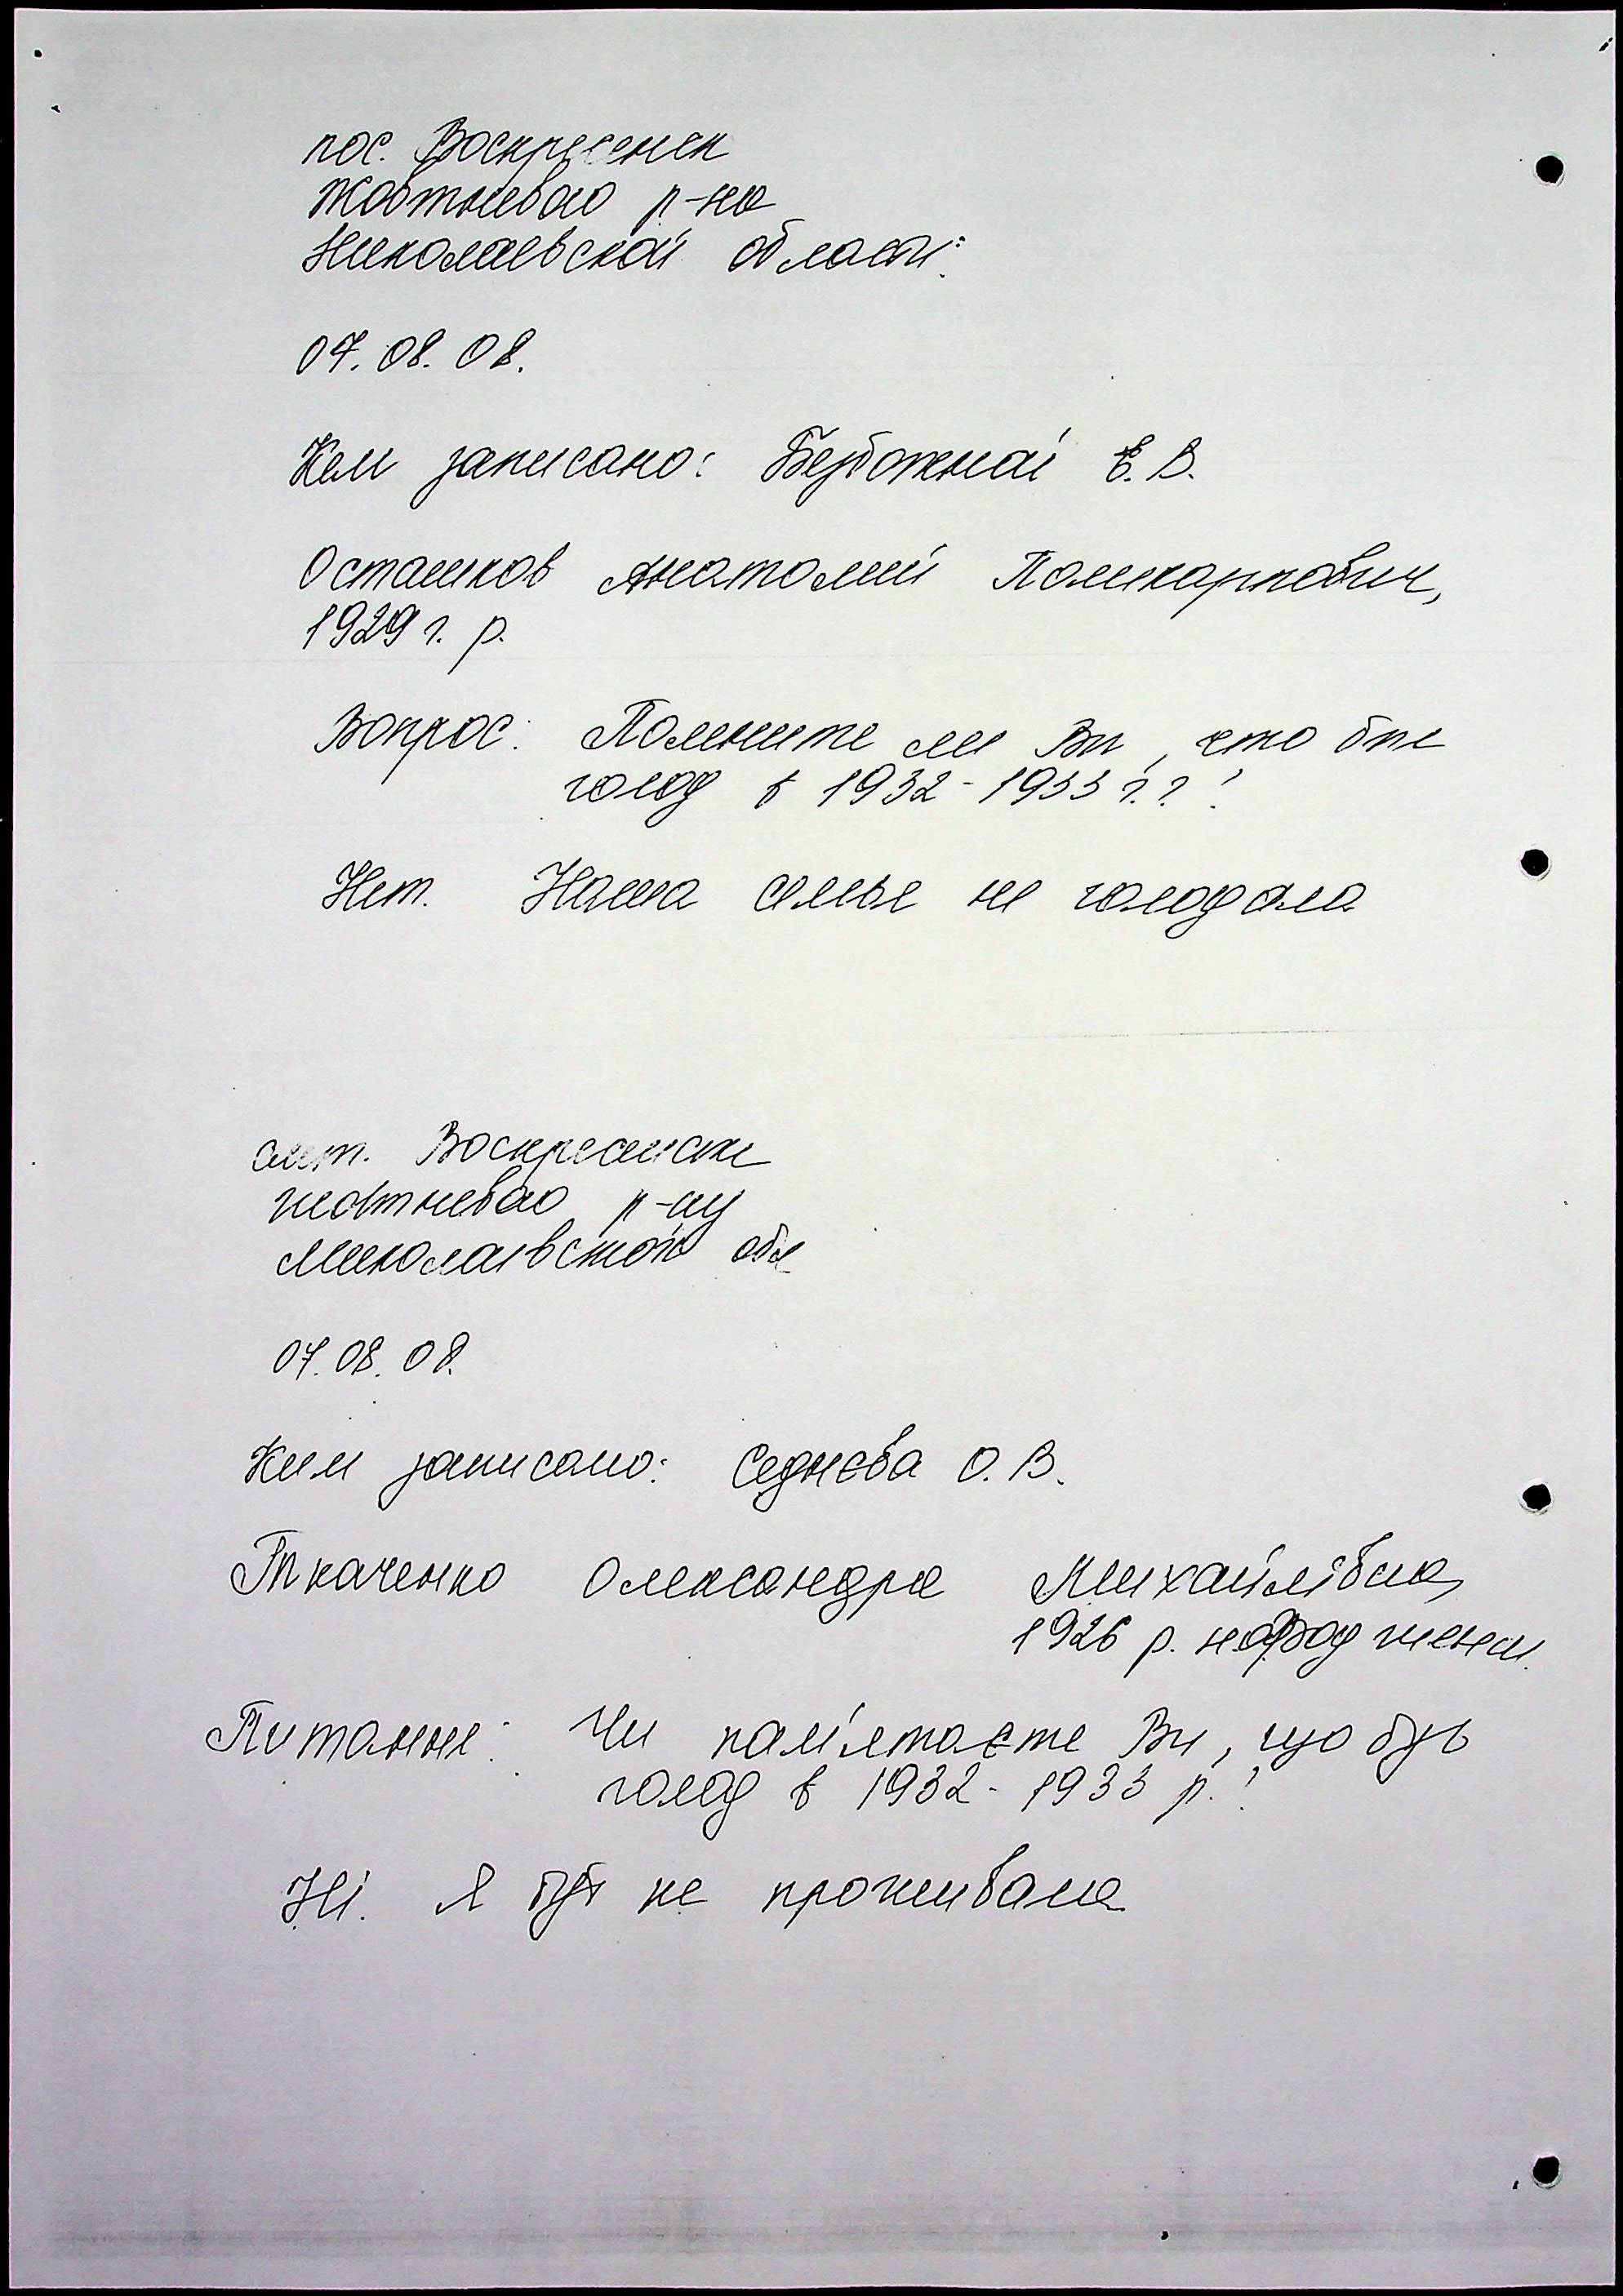 пос. Воскресенск
Жовтневого р-на
Николаевской области.
07.08.08.
Кем записано: Безбожной Е. В.
Осташков Анатолий Поликарпович,
1929 г. р.
Вопрос: Помните ли Вы, что был
голод в 1932-1933 г.г.?
Нет. Наша семья не голодала
смт. Воскресенське
Жовтневого р-ну
Миколаївської обл
07.08.08.
Ким записано: Седнєва О. В.
Ткаченко Олександра Михайлівна,
1926 р. народження.
Питання: Чи пам'ятаєте Ви, що був
голод в 1932-1933 р.?
Ні. Я тут не проживала